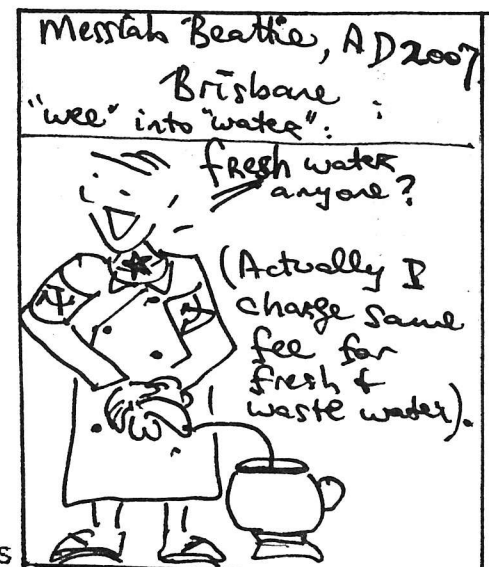 Messiah Beattie, AD 2007
Brisbane :
"wee" into "water":
fresh water
anyone?
(Actually I
charge same
fee for
fresh &
waste water).
s